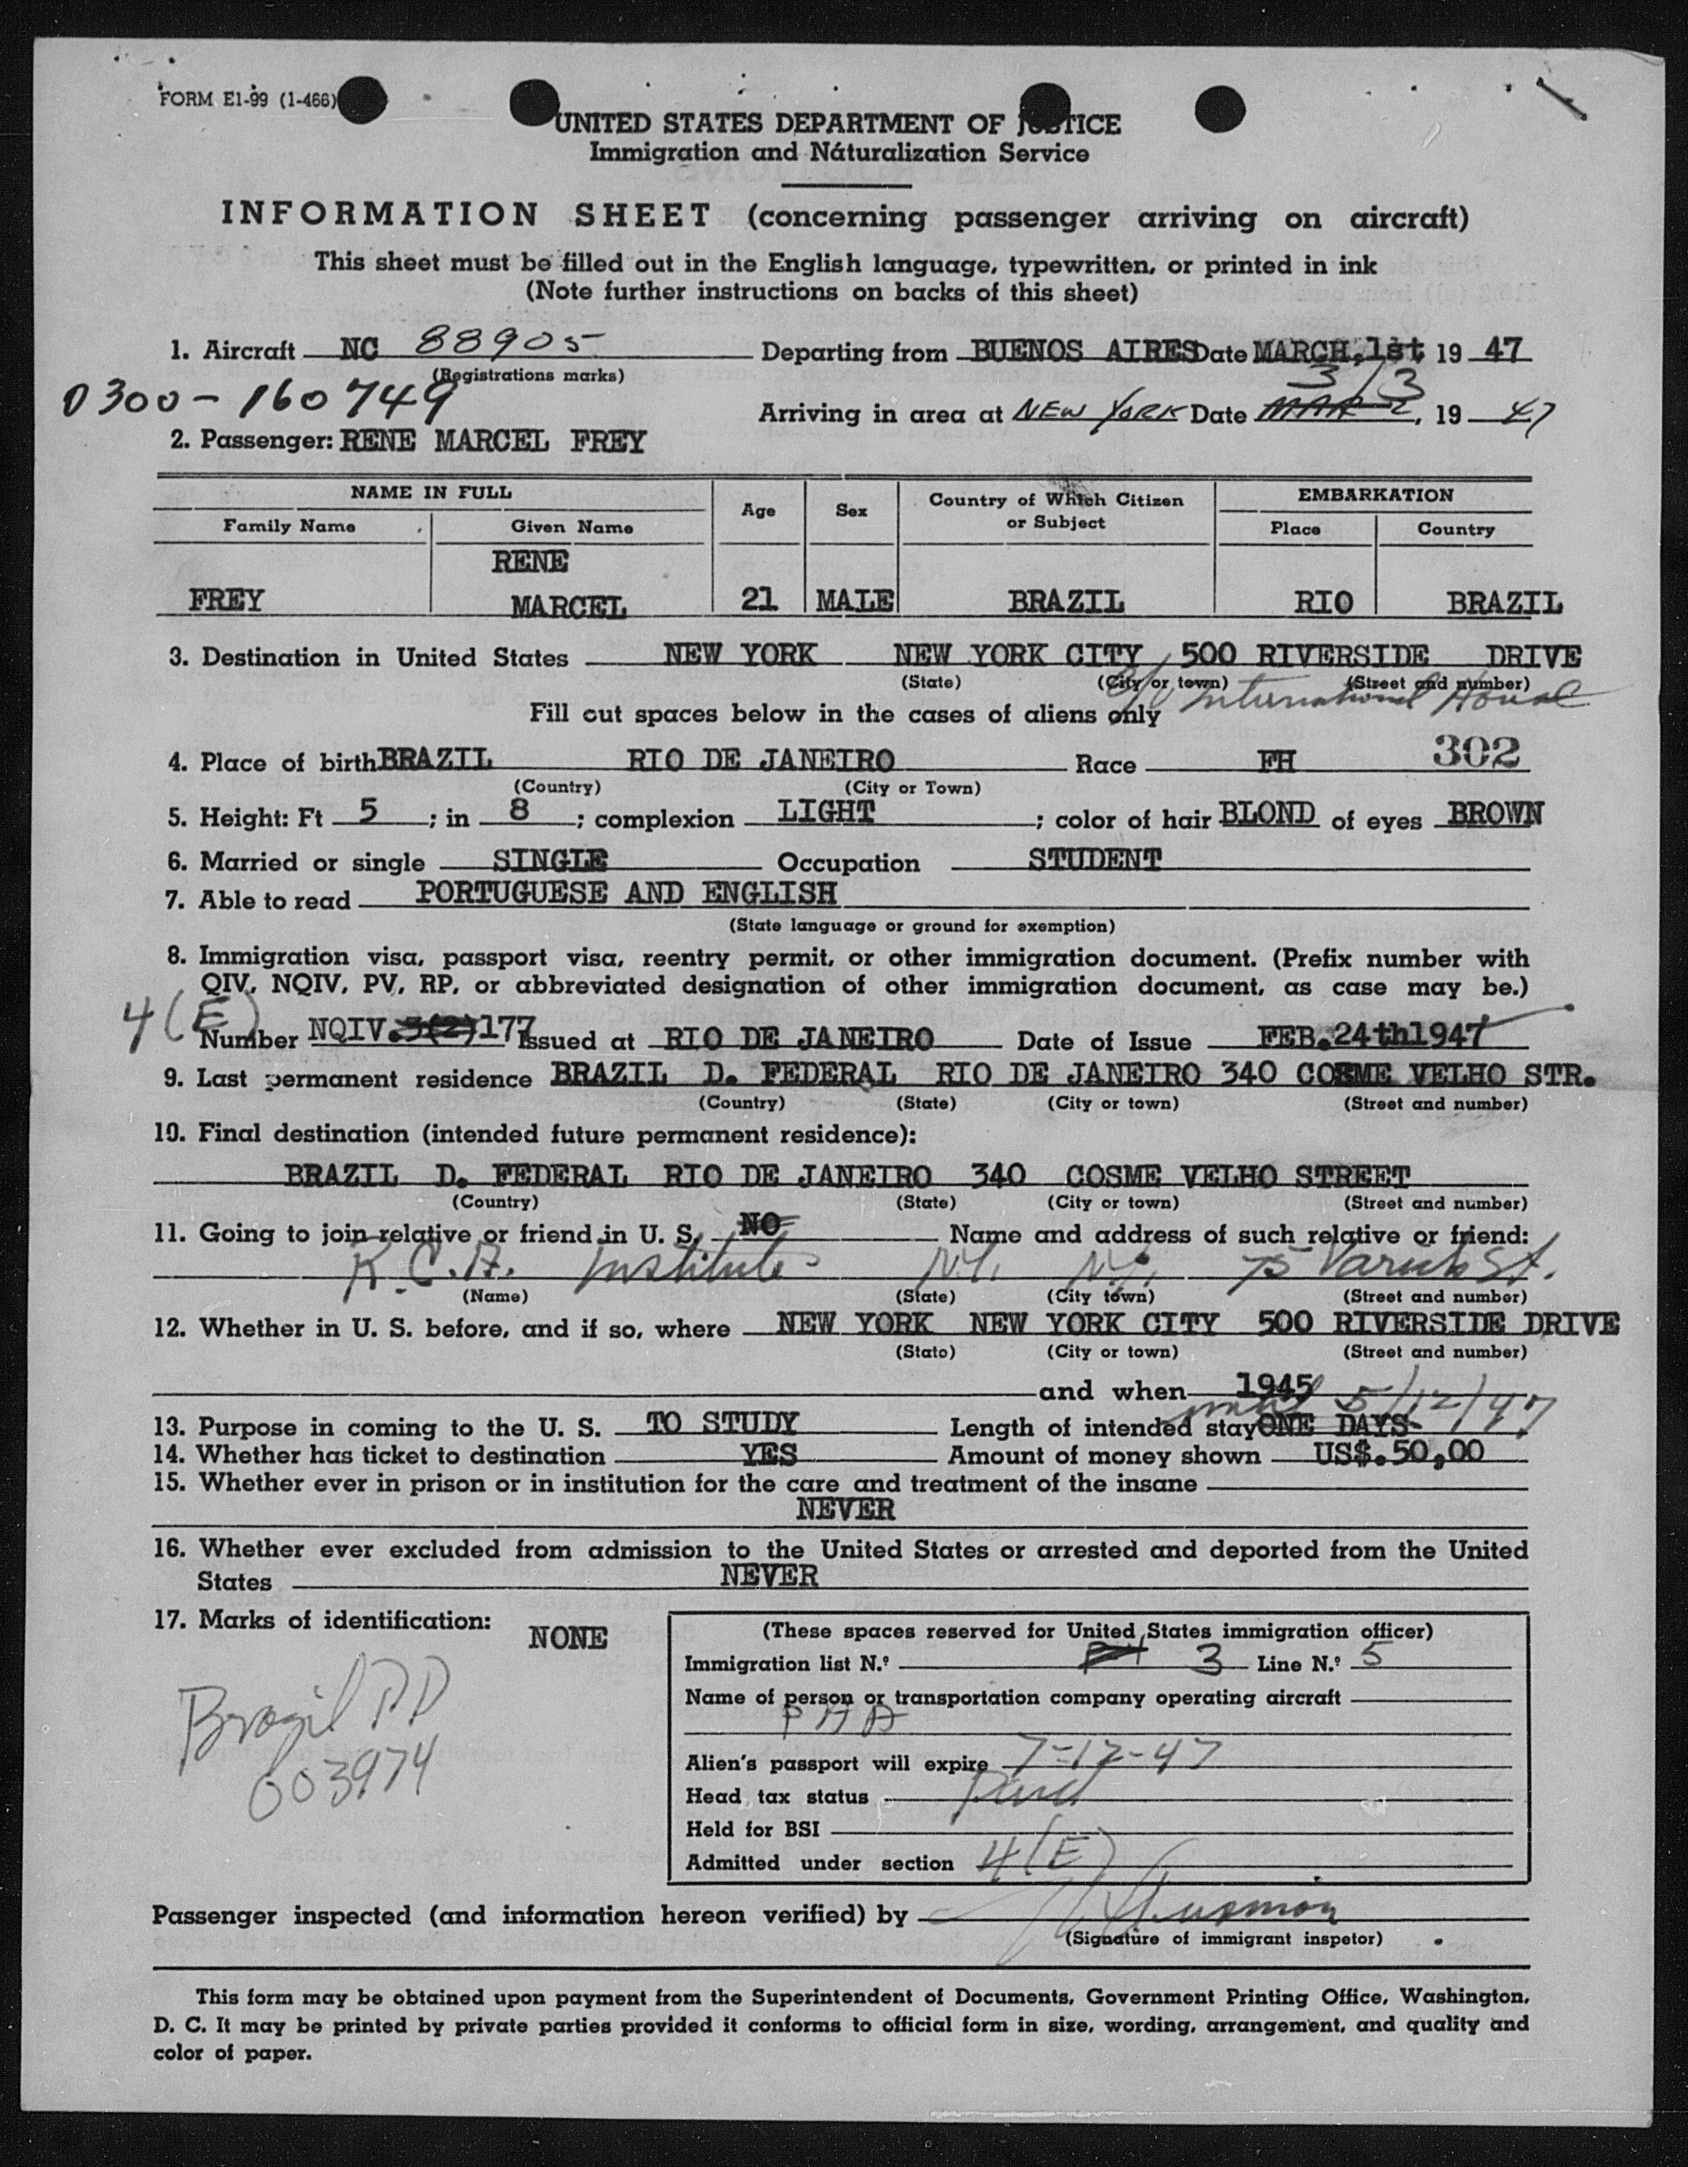 FORM E1-99 (1-466)
UNITED STATES DEPARTMENT OF JUSTICE
Immigration and Naturalization Service
INFORMATION SHEET (concerning passenger arriving on aircraft)
This sheet must be filled out in the English language, typewritten, or printed in ink
(Note further instructions on backs of this sheet)
1. Aircraft NC 88905 Departing from BUENOS AIRES Date MARCH,1st 19 47
(Registrations marks)
3/3
0300-160749
Arriving in area at NEW YORK Date MAR 2, 19 47
2. Passenger: RENE MARCEL FREY
NAME IN FULL Age Sex Country of Which Citizen or Subject EMBARKATION
Family Name Given Name Place Country
RENE
FREY MARCEL 21 MALE BRAZIL RIO BRAZIL
3. Destination in United States NEW YORK NEW YORK CITY 500 RIVERSIDE DRIVE
(State) (City or town) (Street and number)
c/o International House
Fill out spaces below in the cases of aliens only
4. Place of birth BRAZIL RIO DE JANEIRO Race FH 302
(Country) (City or Town)
5. Height: Ft 5 ; in 8 ; complexion LIGHT ; color of hair BLOND of eyes BROWN
6. Married or single SINGLE Occupation STUDENT
7. Able to read PORTUGUESE AND ENGLISH
(State language or ground for exemption)
8. Immigration visa, passport visa, reentry permit, or other immigration document. (Prefix number with
QIV, NQIV, PV, RP, or abbreviated designation of other immigration document, as case may be.)
4(E)
Number NQIV.3(2)177 Issued at RIO DE JANEIRO Date of Issue FEB.24th1947
9. Last permanent residence BRAZIL D. FEDERAL RIO DE JANEIRO 340 COSME VELHO STR.
(Country) (State) (City or town) (Street and number)
10. Final destination (intended future permanent residence):
BRAZIL D. FEDERAL RIO DE JANEIRO 340 COSME VELHO STREET
(Country) (State) (City or town) (Street and number)
11. Going to join relative or friend in U. S. NO Name and address of such relative or friend:
R.C.A. Institute N.Y. N.Y. 75 Varick St.
(Name) (State) (City town) (Street and number)
12. Whether in U. S. before, and if so, where NEW YORK NEW YORK CITY 500 RIVERSIDE DRIVE
(State) (City or town) (Street and number)
and when 1945
until 5/12/47
13. Purpose in coming to the U. S. TO STUDY Length of intended stay ONE DAYS
14. Whether has ticket to destination YES Amount of money shown US$.50,00
15. Whether ever in prison or in institution for the care and treatment of the insane
NEVER
16. Whether ever excluded from admission to the United States or arrested and deported from the United
States NEVER
17. Marks of identification: NONE
Brazil PP
003974
(These spaces reserved for United States immigration officer)
Immigration list N.º 3 Line N.º 5
Name of person or transportation company operating aircraft
PAA
Alien's passport will expire 7-12-47
Head tax status Paid
Held for BSI
Admitted under section 4(E)
Passenger inspected (and information hereon verified) by
(Signature of immigrant inspetor)
This form may be obtained upon payment from the Superintendent of Documents, Government Printing Office, Washington,
D. C. It may be printed by private parties provided it conforms to official form in size, wording, arrangement, and quality and
color of paper.